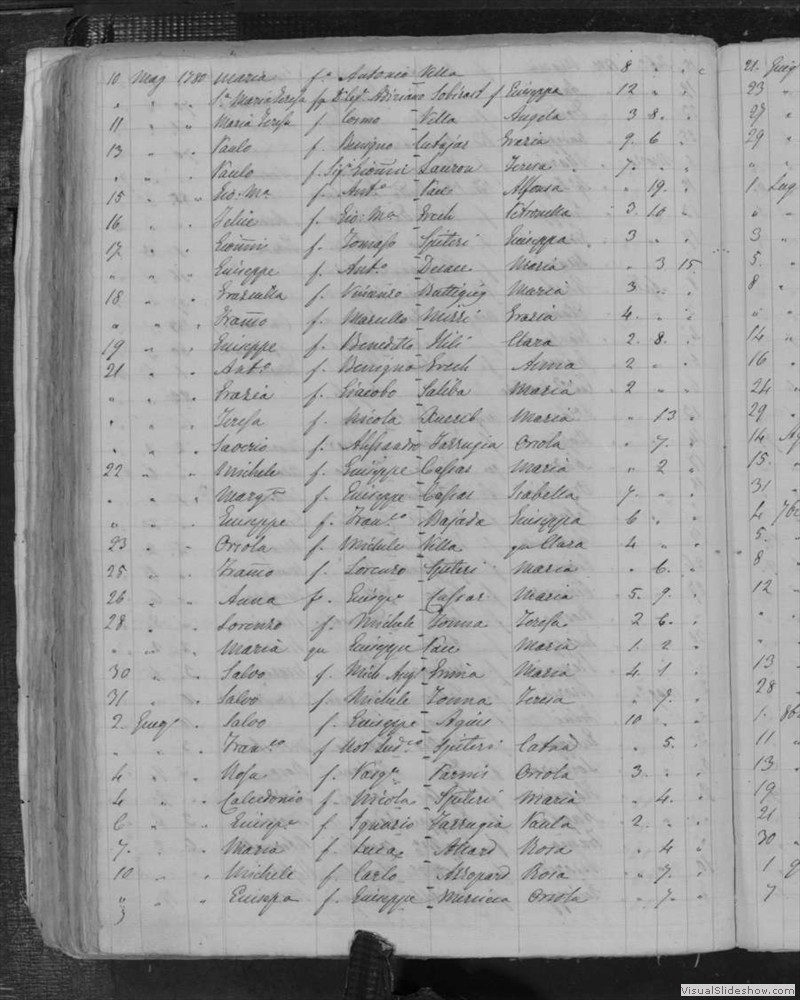 10 Mag 1780 Maria f.a Antonio Villa 8 . . c
" " " Sa. Maria Teresa Adriano Sobirast f Giuseppa 12 . .
11 . " Maria Teresa f Cosmo Villa Angela 3 8 .
13 . . Paulo f. Benigno Grazia 9. 6 .
" . . Paulo f. Sigr Giōnni Lauron Teresa 7. . .
15 . . Gio: Ma. f. Anto. Pace Alfonsa . 19. .
16 . . Felice f. Gio: Ma. Grech Petronella 3. 10 .
17. . . Giōnni f. Tomaso Spiteri Giuseppa 3 . .
" " . Giuseppe f. Anto. Maria . 3 15.
18 . . Graziulla f. Vincenzo Buttigieg Maria 3 . .
" . . f. Marcello Mizzi Grazia 4. . .
19 . . Giuseppe f. Benedetto Hili Clara 2. 8. .
21 . . Anto. f. Benigno Grech Anna 2 . .
. . . Grazia f. Giacobo Saliba Maria 2 . .
" . . Teresa f. Nicola Xuereb Maria " 13 .
" . . Saverio f. Alessandro Farrugia Orsola . 7. .
22 . . Michele f. Giuseppe Cassar Maria " 2 .
" . . Margta. f. Giuseppe Cassar Isabella 7. . .
" . . Giuseppe f. Franco. Bajada Giuseppa 6 . .
23 . . Orsola f. Michele Villa qu Clara 4 " .
25 . . f. Lorenzo Spiteri Maria . 6. .
26 . . Anna f. Giusepe. Cassar Maria 5. 9. .
28 . . Lorenzo f. Michele Zonna Teresa 2 6. .
" . . Maria qu Giuseppe Pace Maria 1. 2 .
30 . . Salvo f. Mich. Ang. Maria 4. 1 .
31 . . Salvo f. Michele Zonna Teresa . 9. .
2. Giug. . Salvo f. Giuseppe Agius 10 . .
. . . Franco. f Not Ludco. Spiteri Catna . 5. .
4 . . Rosa f. Pasqe. Parnis Orsola 3 . .
4 . . Calcedonio f. Nicola Spiteri Maria . 4. .
6 . . Giusepe. f. Ignazio Farrugia Paula 2 . .
7. . . Maria f. Luca Attard Rosa . 4 .
10 . . Michele f. Carlo Axopard Rosa " 7. .
" . . Giusepa f. Giuseppe Orsola . 7. .
21. Giug
23 "
27 "
29 "
" "
1. Lug
" "
3 "
5. .
8 .
" .
14 "
16 .
24 .
29 .
14 Ag
15. .
31 .
4 7b
5. .
8 .
12 .
" .
" .
13 .
28 .
1. 8b
11 "
13 .
19
21
30 .
1 9
7
VisualSlideshow.com